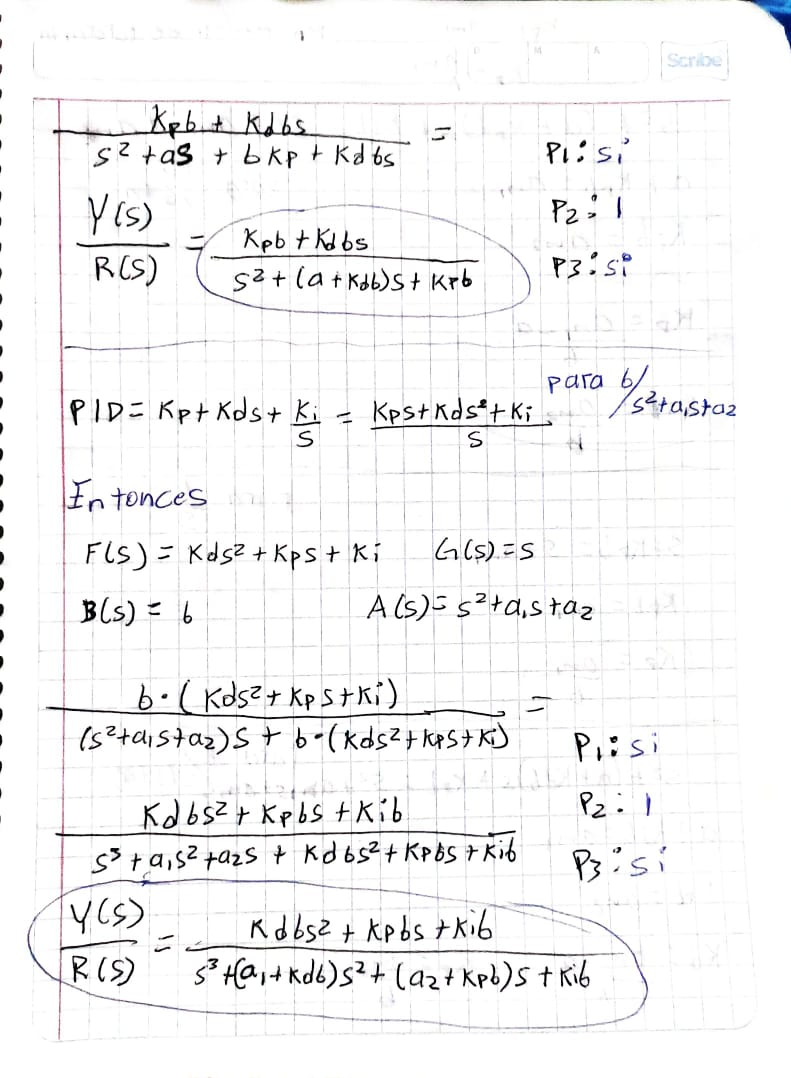 Scribe
D M A
Kpb + Kdbs / s² + as + bKp + Kdbs =
P1: si
Y(s) / R(s) = Kpb + Kdbs / s² + (a + Kdb)s + Kpb
P2: 1
P3: si
PID = Kp + Kds + Ki / s = Kps + Kds² + Ki / s para b / s² + a₁s + a₂
Entonces
F(s) = Kds² + Kps + Ki G(s) = s
B(s) = b A(s) = s² + a₁s + a₂
b · (Kds² + Kps + Ki) / (s² + a₁s + a₂)s + b · (Kds² + Kps + Ki) =
P1: si
Kdbs² + Kpbs + Kib / s³ + a₁s² + a₂s + Kdbs² + Kpbs + Kib
P2: 1
P3: si
Y(s) / R(s) = Kdbs² + Kpbs + Kib / s³ + (a₁ + Kdb)s² + (a₂ + Kpb)s + Kib